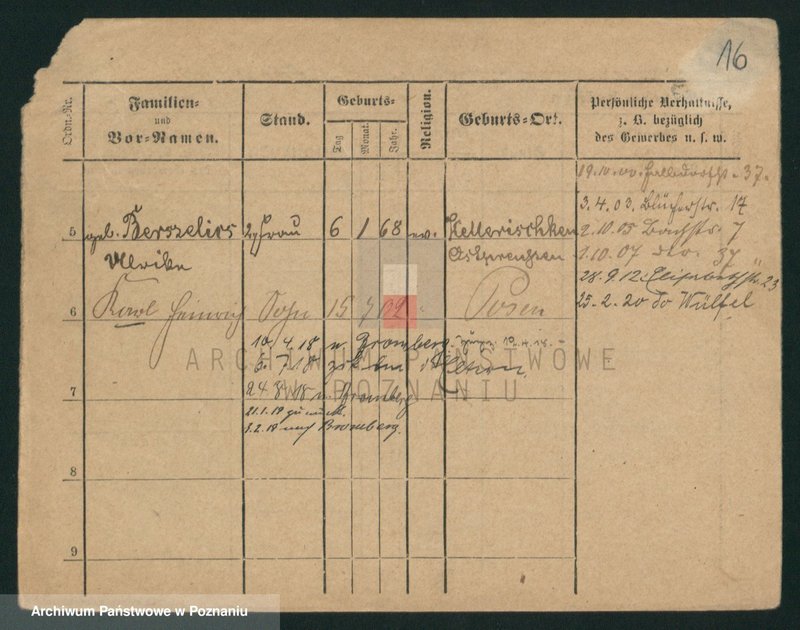 16
Ordn.-Nr.
Familien-
und
Vor-Namen.
Stand.
Geburts-
Tag
Monat.
Jahr.
Religion.
Geburts-Ort.
Persönliche Verhältnisse,
z. B. bezüglich
des Gewerbes u. s. w.
37
3.4.03. Blücherstr. 17
2.10.05 Bachstr. 7
1.10.07 dto. 37
28.9.12. Elisabethstr. 23
25.2.20 do Wülfel
5
geb. Berszelies
Frau
6
1
68
ev.
Kellerischken
Ulrike
Ostpreußen
6
Karl Heinrich
Sohn
15
7
02
Posen
10.4.18 n. Bromberg.
5.7.18
7
24.8.18 n. Bromberg
21.1.19 zurück.
3.2.19 nach Bromberg.
8
9
ARCHIWUM PAŃSTWOWE
W POZNANIU
Archiwum Państwowe w Poznaniu